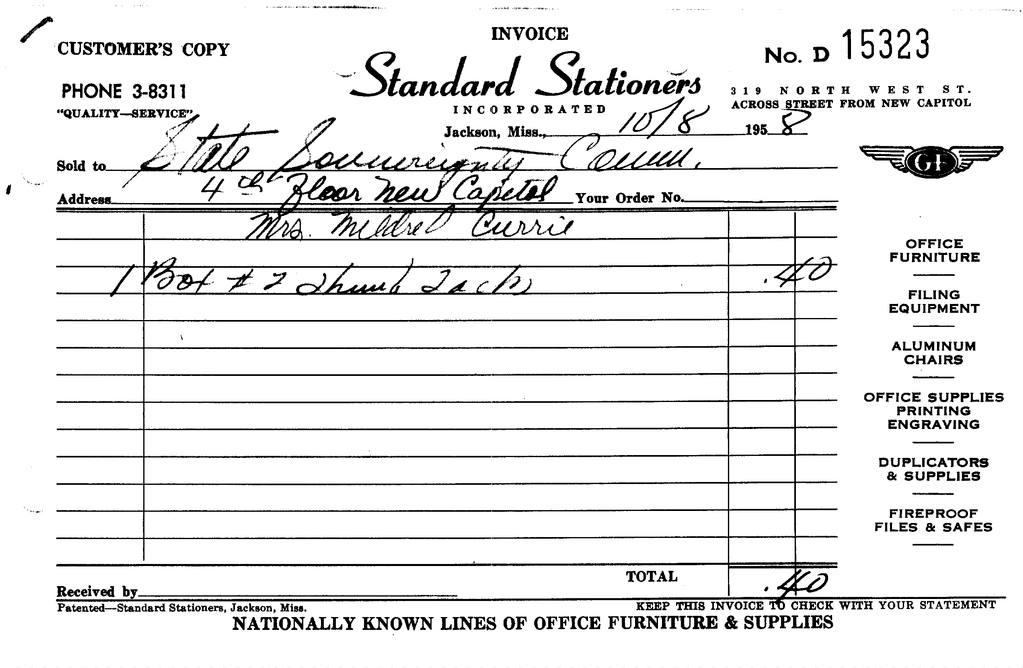 INVOICE
CUSTOMER'S COPY
No. D 15323
PHONE 3-8311
Standard Stationers
319 NORTH WEST ST.
"QUALITY—SERVICE"
INCORPORATED
ACROSS STREET FROM NEW CAPITOL
Jackson, Miss., 10/8 1958
Sold to State Sovereignty Comm.
GF
Address 4th Floor New Capitol Your Order No.
Mrs. Mildred Currie
1 Box #2 Thumb Tacks .40
OFFICE
FURNITURE
FILING
EQUIPMENT
ALUMINUM
CHAIRS
OFFICE SUPPLIES
PRINTING
ENGRAVING
DUPLICATORS
& SUPPLIES
FIREPROOF
FILES & SAFES
TOTAL .40
Received by
Patented—Standard Stationers, Jackson, Miss.
KEEP THIS INVOICE TO CHECK WITH YOUR STATEMENT
NATIONALLY KNOWN LINES OF OFFICE FURNITURE & SUPPLIES